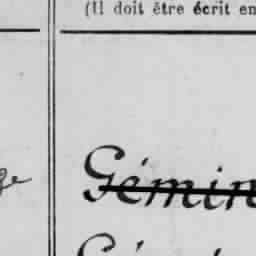 (Il doit être écrit en
Gémin